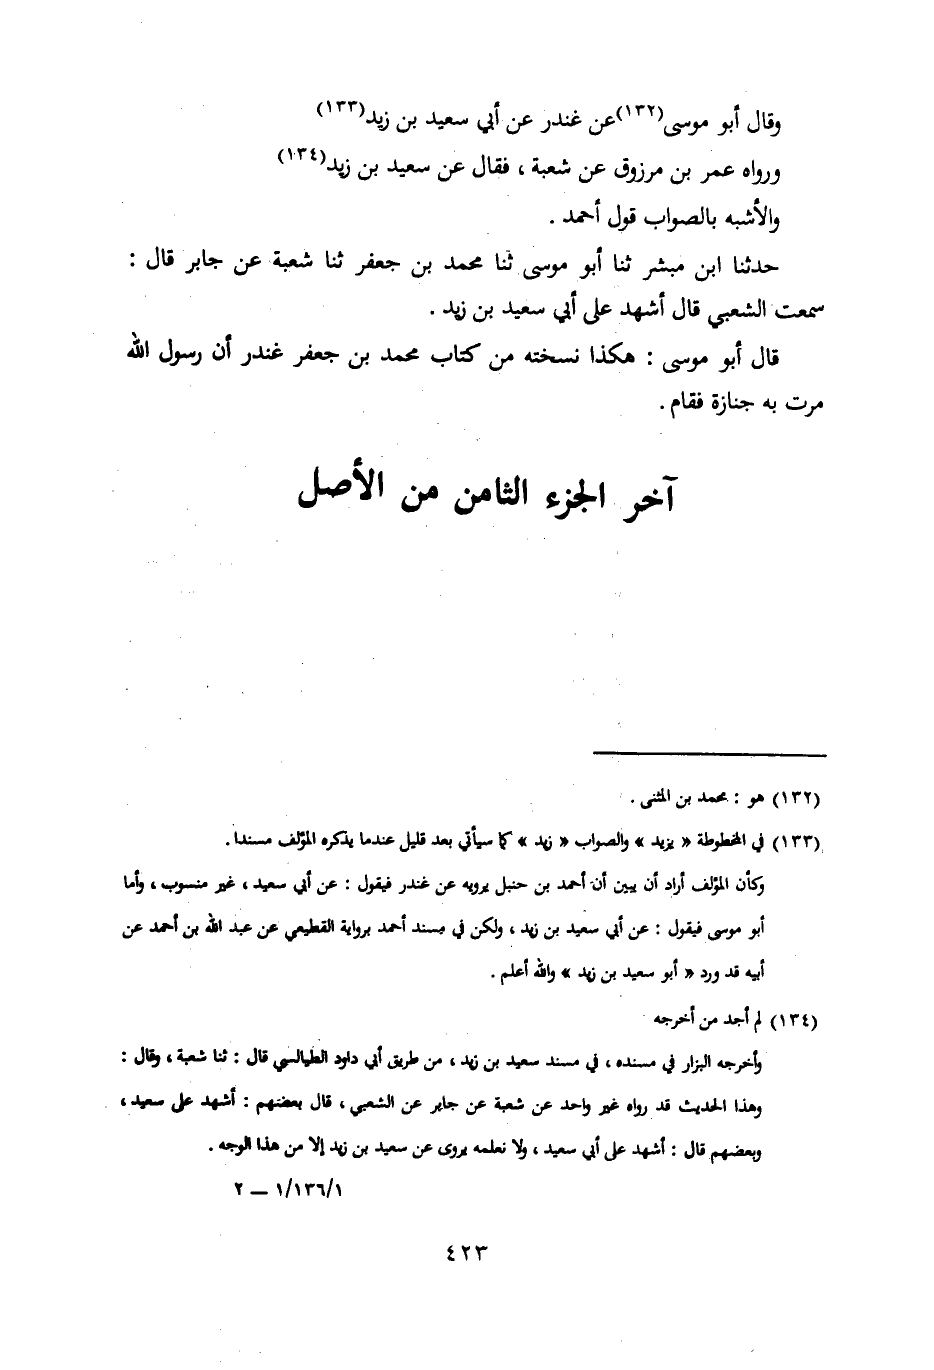 وقال أبو موسى(١٣٢)عن غندر عن أبي سعيد بن زيد(١٣٣)
ورواه عمر بن مرزوق عن شعبة ، فقال عن سعيد بن زيد(١٣٤)
والأشبه بالصواب قول أحمد .
حدثنا ابن مبشر ثنا أبو موسى ثنا محمد بن جعفر ثنا شعبة عن جابر قال :
سمعت الشعبي قال أشهد على أبي سعيد بن زيد .
قال أبو موسى : هكذا نسخته من كتاب محمد بن جعفر غندر أن رسول الله
مرت به جنازة فقام .
آخر الجزء الثامن من الأصل
(١٣٢) هو : محمد بن المثنى .
(١٣٣) في المخطوطة « يزيد » والصواب « زيد » كما سيأتي بعد قليل عندما يذكره المؤلف مسندا .
وكأن المؤلف أراد أن يبين أن أحمد بن حنبل يرويه عن غندر فيقول : عن أبي سعيد ، غير منسوب ، وأما
أبو موسى فيقول : عن أبي سعيد بن زيد ، ولكن في مسند أحمد برواية القطيعي عن عبد الله بن أحمد عن
أبيه قد ورد « أبو سعيد بن زيد » والله أعلم .
(١٣٤) لم أجد من أخرجه
وأخرجه البزار في مسنده ، في مسند سعيد بن زيد ، من طريق أبي داود الطيالسي قال : ثنا شعبة ، وقال :
وهذا الحديث قد رواه غير واحد عن شعبة عن جابر عن الشعبي ، قال بعضهم : أشهد على سعيد ،
وبعضهم قال : أشهد على أبي سعيد ، ولا نعلمه يروى عن سعيد بن زيد إلا من هذا الوجه .
١/١٣٦/١ — ٢
٤٢٣